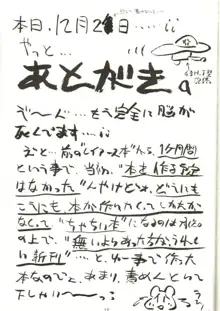 本日、12月2日……¡¡
やっと…
あとがき。
ぞ〜〜ん…もう完全に脳が
死んでます…¡¡
えと…前の"レイアース本"から1ケ月間
という事で、当初、"本を作る予定
はなかった"んやけどねェ、どうにも
こうにも本が作りたくてしかたが
なくって"ちゃちい本"になるのは
の上で、"無いよりあったならうれし
い新刊"…と、ゆー事で作った
本なので、あまり、責めんとって
下しゃい〜〜っ¡